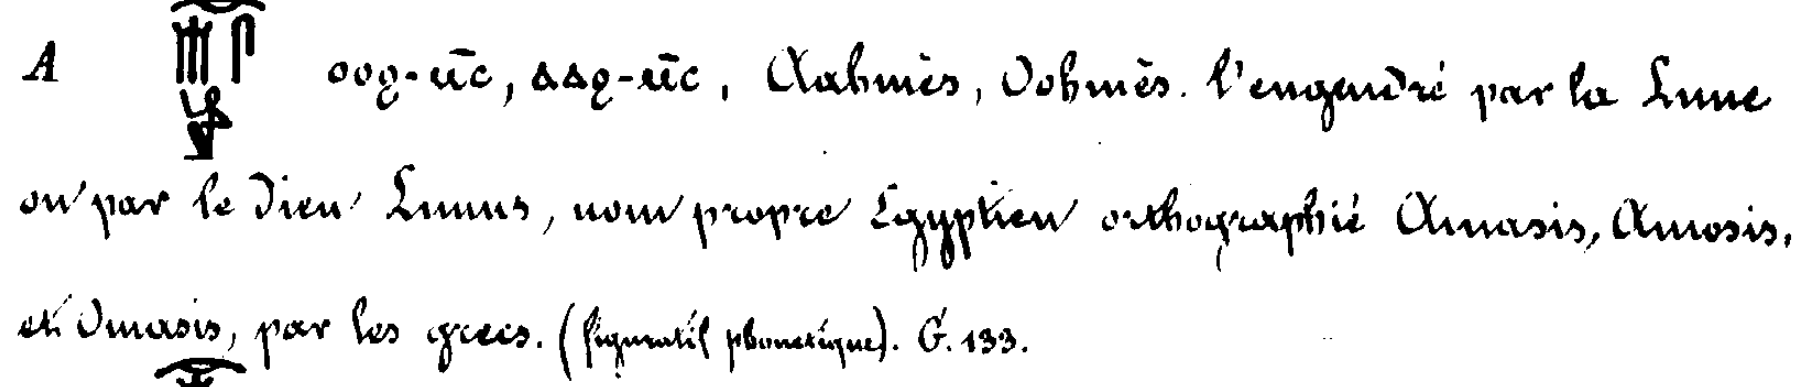 A ⲟⲟϩ-ⲙ̄ⲥ, ⲁⲁϩ-ⲙ̄ⲥ, Aahmès, Oohmès. l'engendré par la Lune
ou par le Dieu Lunus, nom propre Égyptien orthographié Amasis, Amosis,
et Omasis, par les grecs. (figuratif phonétique). G. 133.